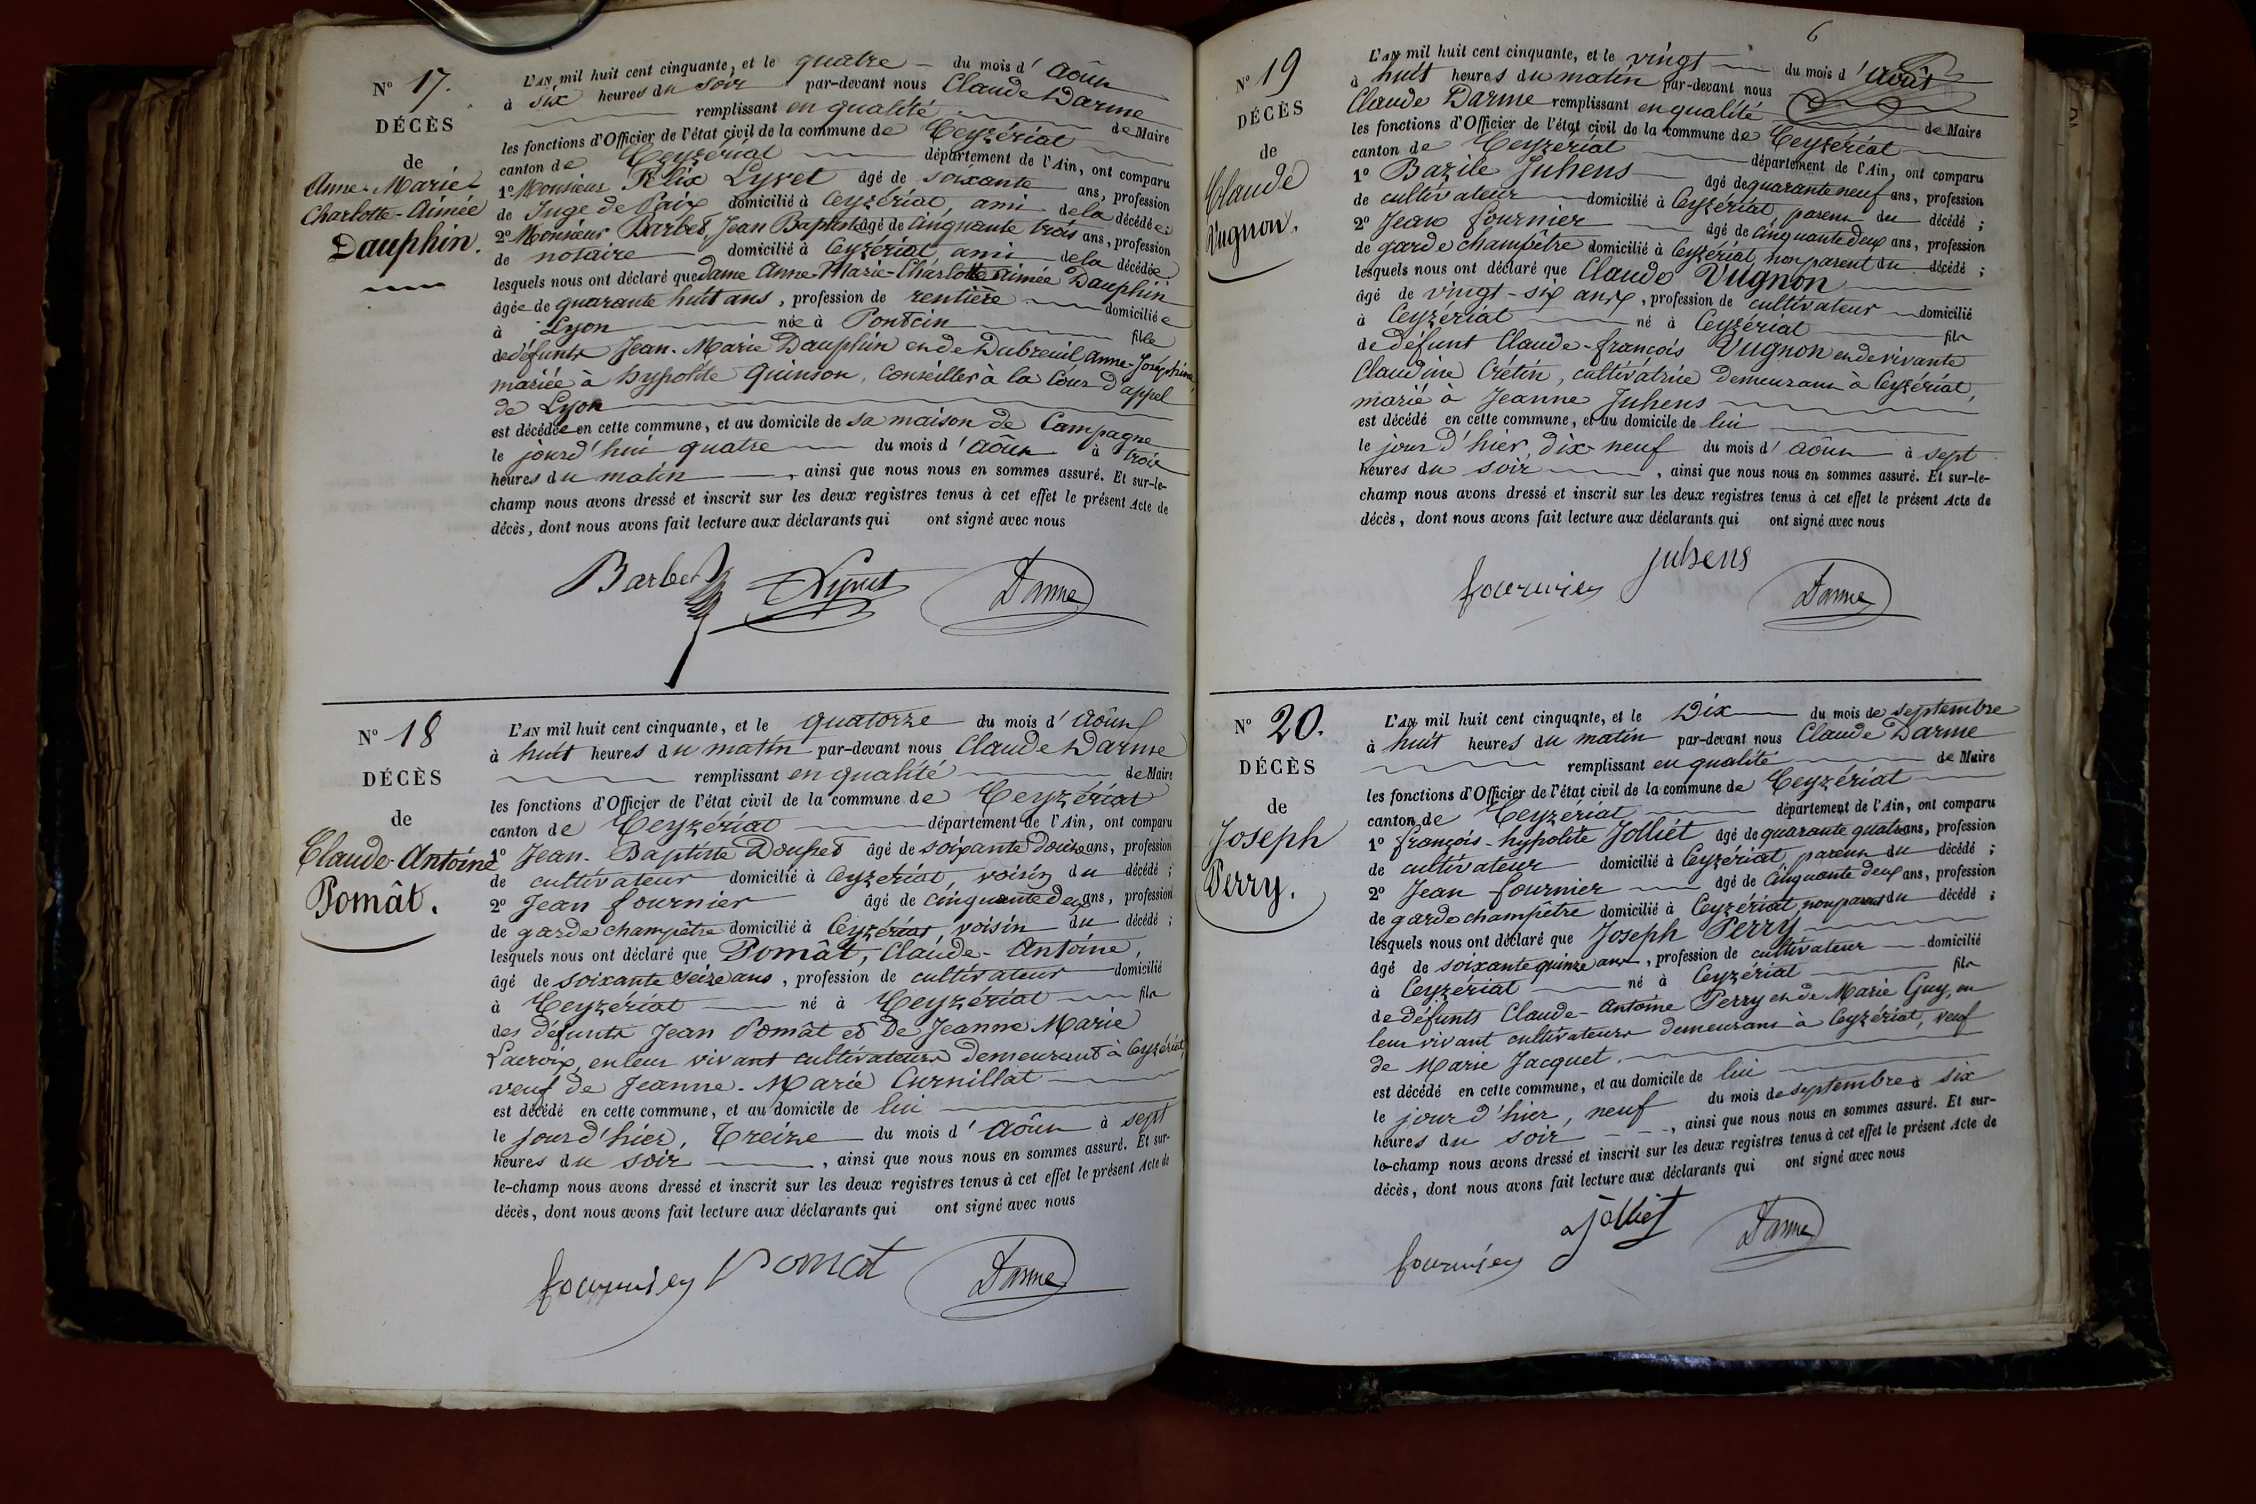 N° 17.
DÉCÈS
de
Anne-Marie
Charlotte-Aimée
Dauphin.
L'AN mil huit cent cinquante, et le quatre du mois d'Août
à six heures du soir par-devant nous Claude Darme
remplissant en qualité de Maire
les fonctions d'Officier de l'état civil de la commune de Ceyzériat
canton de Ceyzériat département de l'Ain, ont comparu
1° Monsieur Félix Lyvet âgé de soixante ans, profession
de Juge de Paix domicilié à Ceyzériat, ami de la décédée;
2° Monsieur Barbet, Jean Baptiste âgé de cinquante trois ans, profession
de notaire domicilié à Ceyzériat, ami de la décédée
lesquels nous ont déclaré que dame Anne-Marie-Charlotte Aimée Dauphin
âgée de quarante huit ans, profession de rentière domiciliée
à Lyon née à Pontcin fille
de défunts Jean-Marie Dauphin et de Dubreuil Anne-Joséphine,
mariée à hypolite Quinson, Conseiller à la Cour d'appel
de Lyon
est décédée en cette commune, et au domicile de sa maison de Campagne
le jourd'hui quatre du mois d'Août à trois
heures du matin, ainsi que nous nous en sommes assuré. Et sur-le-
champ nous avons dressé et inscrit sur les deux registres tenus à cet effet le présent Acte de
décès, dont nous avons fait lecture aux déclarants qui ont signé avec nous
Barbet Lyvet Darme
N° 18
DÉCÈS
de
Claude-Antoine
Pomât.
L'AN mil huit cent cinquante, et le quatorze du mois d'Août
à huit heures du matin par-devant nous Claude Darme
remplissant en qualité de Maire
les fonctions d'Officier de l'état civil de la commune de Ceyzériat
canton de Ceyzériat département de l'Ain, ont comparu
1° Jean-Baptiste âgé de soixante douze ans, profession
de cultivateur domicilié à Ceyzériat, voisin du décédé;
2° Jean fournier âgé de cinquante deux ans, profession
de garde champêtre domicilié à Ceyzériat, voisin du décédé;
lesquels nous ont déclaré que Pomât, Claude-Antoine,
âgé de soixante seize ans, profession de cultivateur domicilié
à Ceyzériat né à Ceyzériat fils
des défunts Jean Pomât et de Jeanne Marie
Lacroix, en leur vivant cultivateurs demeurant à Ceyzériat,
veuf de Jeanne-Marie Curnillat
est décédé en cette commune, et au domicile de lui
le jour d'hier, treize du mois d'Août à sept
heures du soir, ainsi que nous nous en sommes assuré. Et sur-
le-champ nous avons dressé et inscrit sur les deux registres tenus à cet effet le présent Acte de
décès, dont nous avons fait lecture aux déclarants qui ont signé avec nous
fournier Pomat Darme
6
N° 19
DÉCÈS
de
Claude
Vugnon.
L'AN mil huit cent cinquante, et le vingt du mois d'Août
à huit heures du matin par-devant nous
Claude Darme remplissant en qualité de Maire
les fonctions d'Officier de l'état civil de la commune de Ceyzériat
canton de Ceyzériat département de l'Ain, ont comparu
1° Bazile Juhens âgé de quarante neuf ans, profession
de cultivateur domicilié à Ceyzériat, parent du décédé;
2° Jean fournier âgé de cinquante deux ans, profession
de garde champêtre domicilié à Ceyzériat, non parent du décédé;
lesquels nous ont déclaré que Claude Vugnon
âgé de vingt-six ans, profession de cultivateur domicilié
à Ceyzériat né à Ceyzériat fils
de défunt Claude-françois Vugnon et de vivante
Claudine Crétin, cultivatrice demeurant à Ceyzériat,
marié à Jeanne Juhens
est décédé en cette commune, et au domicile de lui
le jour d'hier, dix-neuf du mois d'Août à sept
heures du soir, ainsi que nous nous en sommes assuré. Et sur-le-
champ nous avons dressé et inscrit sur les deux registres tenus à cet effet le présent Acte de
décès, dont nous avons fait lecture aux déclarants qui ont signé avec nous
fournier Juhens Darme
N° 20.
DÉCÈS
de
Joseph
Perry.
L'AN mil huit cent cinquante, et le Dix du mois de septembre
à huit heures du matin par-devant nous Claude Darme
remplissant en qualité de Maire
les fonctions d'Officier de l'état civil de la commune de Ceyzériat
canton de Ceyzériat département de l'Ain, ont comparu
1° françois-hypolite Jolliet âgé de quarante quatre ans, profession
de cultivateur domicilié à Ceyzériat, parent du décédé;
2° Jean fournier âgé de Cinquante deux ans, profession
de garde champêtre domicilié à Ceyzériat, non parent du décédé;
lesquels nous ont déclaré que Joseph Perry
âgé de soixante quinze ans, profession de cultivateur domicilié
à Ceyzériat né à Ceyzériat fils
de défunts Claude-Antoine Perry et de Marie Guy, en
leur vivant cultivateurs demeurant à Ceyzériat, veuf
de Marie Jacquet.
est décédé en cette commune, et au domicile de lui
le jour d'hier, neuf du mois de septembre à six
heures du soir, ainsi que nous nous en sommes assuré. Et sur-
le-champ nous avons dressé et inscrit sur les deux registres tenus à cet effet le présent Acte de
décès, dont nous avons fait lecture aux déclarants qui ont signé avec nous
fournier Jolliet Darme